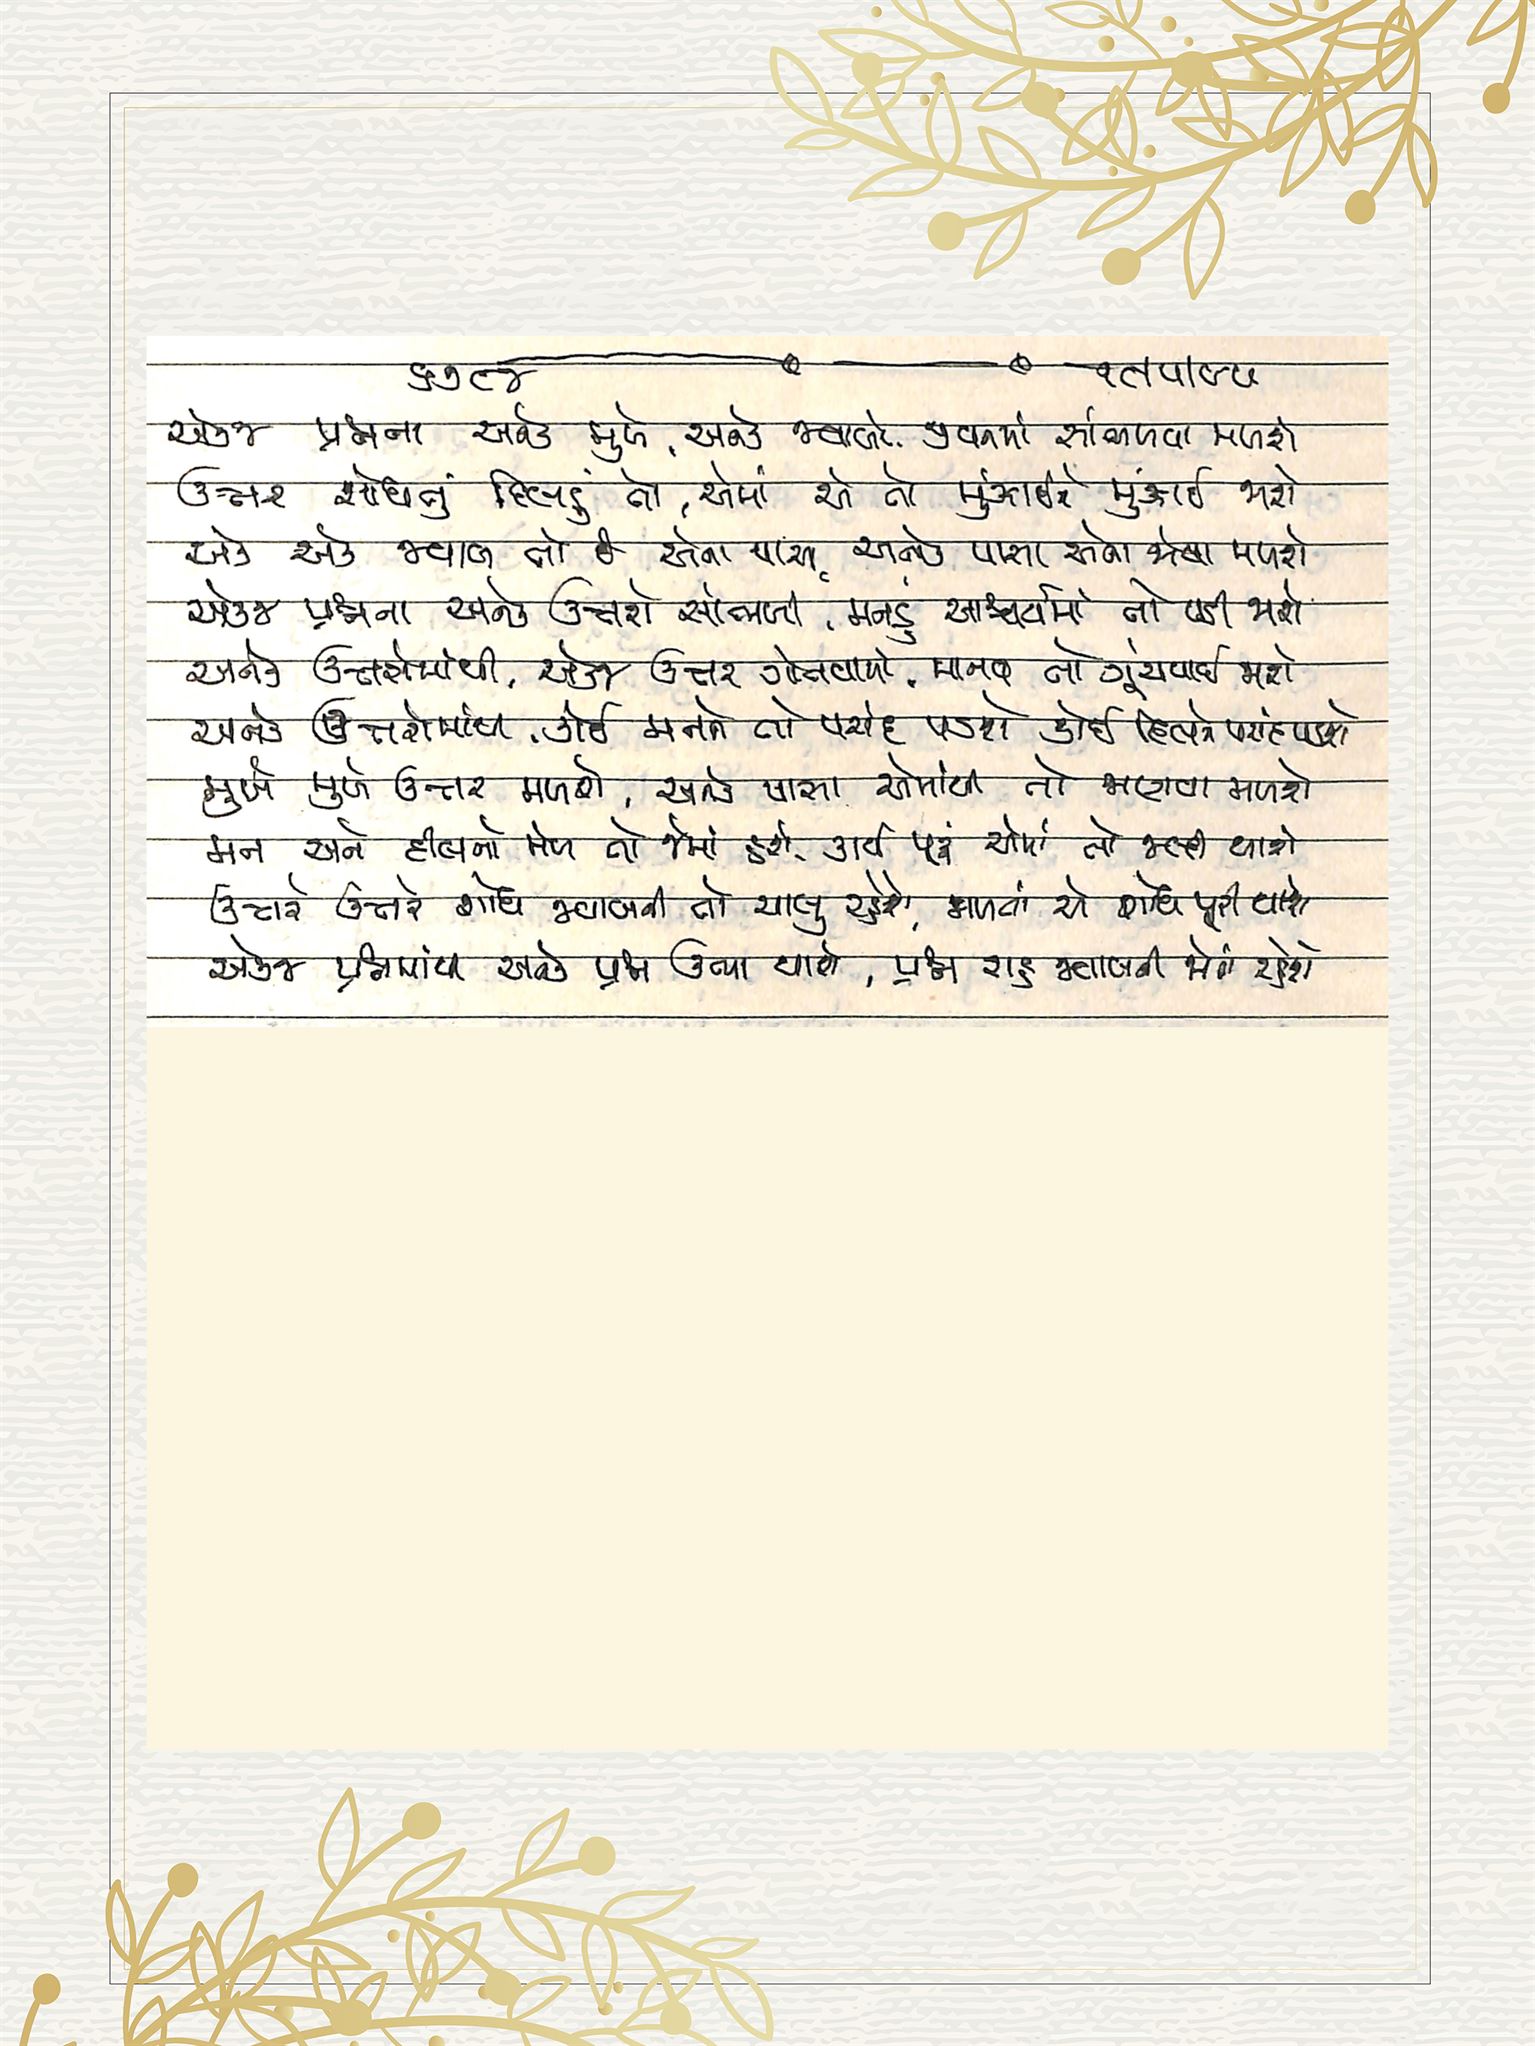 ૬૭૯૪
એકજ પ્રશ્નના અનેક મુખે, અનેક જવાબો જીવનમાં સાંભળવા મળશે
ઉત્તર શોધતું દિલડું તો, એમાં એ તો મુંઝાઈને મુંઝાઈ જાશે
એક એક જવાબ તો છે એના પાસા, અનેક પાસા એના એવા મળશે
એકજ પ્રશ્નના અનેક ઉત્તરો સાંભળી, મનડું આશ્ચર્યમાં તો પડી જાશે
અનેક ઉત્તરોમાંથી, એકજ ઉત્તર ગોતવામાં, માનવ તો ગૂંચવાઈ જાશે
અનેક ઉત્તરોમાંથી, કોઈ મનને તો પસંદ પડશે કોઈ દિલને પસંદ પડશે
મુખે મુખે ઉત્તર મળશે, અનેક પાસા એમાંથી તો જાણવા મળશે
મન અને દીલનો મેળ તો જેમાં હશે, કાર્ય પૂરું એમાં તો જલ્દી થાશે
ઉત્તરે ઉત્તરે શોધ જવાબની તો ચાલુ રહેશે, મળતાં એ શોધ પૂરી થાશે
એકજ પ્રશ્નમાંથી અનેક પ્રશ્ન ઉભા થાશે, પ્રશ્ન રાહ જવાબની જોતાં રહેશે